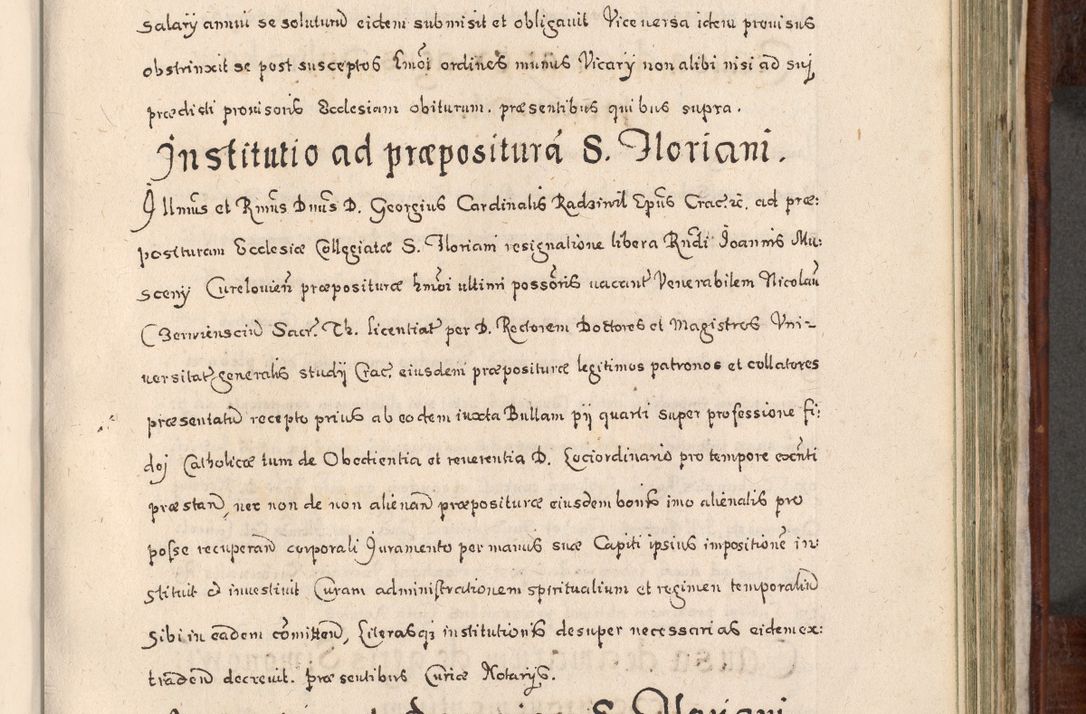 salarÿ annui se soluturũ eidem submisit et obligavit Vice versa idem provisus
obstrinxit se post susceptos hmõi ordines munus Vicarÿ non alibi nisi ad sui
prædicti provisoris Ecclesiam obiturum. præsentibus quibus supra.
Institutio ad præpositurã S. Floriani.
Illmũs et Rmũs Dnũs D. Georgius Cardinalis Radziwil Epũs Crac. &c. ad præ:
posituram Ecclesiæ Collegiatæ S. Floriani resignatione libera Rndi Joannis Mu:
scenÿ Curelovien̄ præpositurae hmõi ultimi possõris vacan̄t Venerabilem Nicolaũ
sacr. Th. licentiat per D. Rectorem Doctores et Magistros Uni-
versitat generalis studÿ Crac. eiusdem præposituræ legitimos patronos et collatores
præsentatũ recepto prius ab eodem iuxta Bullam pÿ quarti super professione fi:
dei Catholicæ tum de Obedientia et reverentia D. Lociordinario pro tempore exñti
præstan̄, nec non de non alienan̄ præposituræ eiusdem bonis imo alienatis pro
posse recuperan̄ corporali Juramento per manus suæ Capiti ipsius impositionẽ in:
stituit & investivit Curam administrationem spiritualium et regimen temporaliũ
sibi in eadem cõmitten̄, Literasq; institutionis desuper necessarias eidem ex:
traden̄ decrevit. Præsentibus Curiæ Notarÿs.
S. Floriani